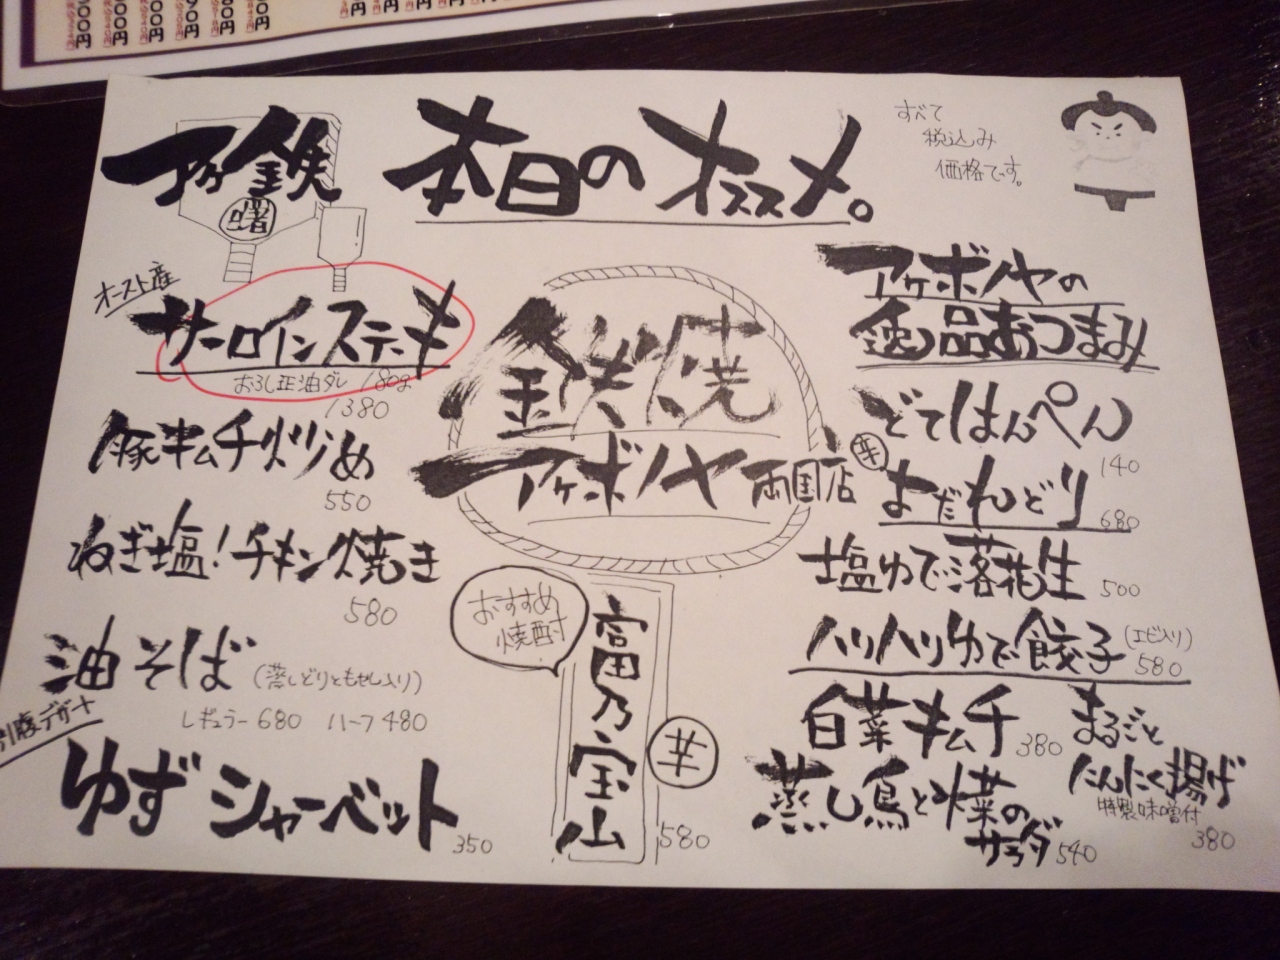 アケ鉄
曙
本日のオススメ。
すべて
税込み
価格です。
オースト産
サーロインステーキ
おろし正油ダレ 180g
1380
豚キムチ炒め
550
ねぎ塩!チキン焼き
580
油そば(蒸しどりともせし入り)
レギュラー680 ハーフ480
別腹デザート
ゆずシャーベット
350
鉄板焼
アケボノヤ両国店
おすすめ
焼酎
富乃宝山
芋
580
アケボノヤの
逸品おつまみ
どてはんぺん
140
辛
よだれどり
680
塩ゆで落花生
500
ハリハリゆで餃子(エビ入り)
580
白菜キムチ
380
まるごと
にんにく揚げ
特製味噌付
380
蒸し鳥と水菜の
サラダ
540